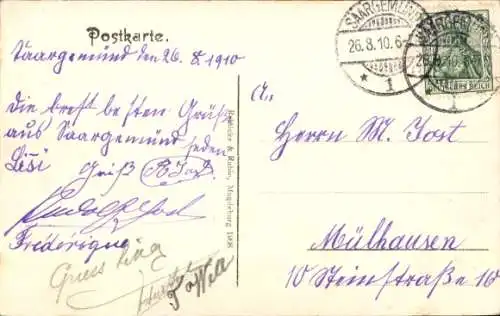 Postkarte.
Saargemünd den 26. 8. 1910
Die besten Grüße
aus Saargemünd
Gruß R. Jost
Frédérique
Gruss
Reblicke & Rubin, Magdeburg 1908
SAARGEMÜND
26.8.10.6-
* 1
SAARGEMÜND
26.8.10.6-
1
DEUTSCHES REICH
An
Herrn M. Jost
Mülhausen
10 Steinstraße 10